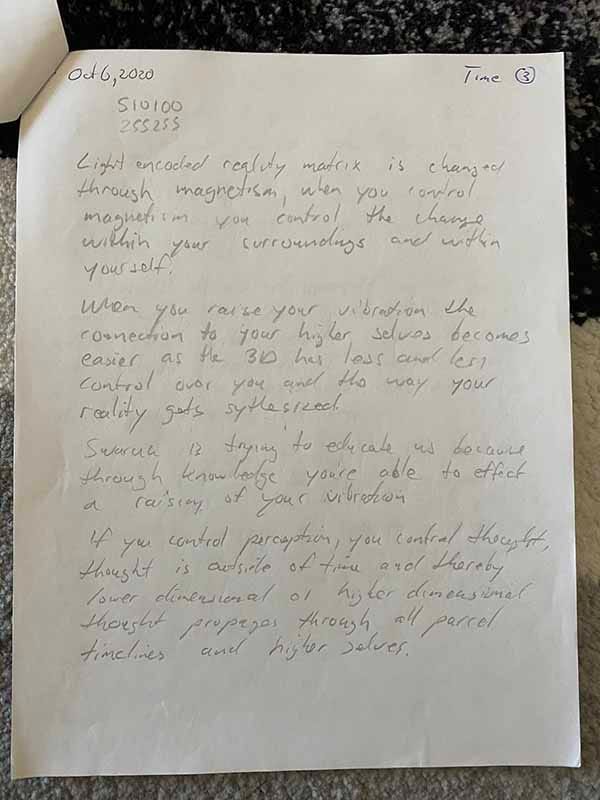 Oct 6, 2020
Time ③
510100
255255
Light encoded reality matrix is changed
through magnetism, when you control
magnetism you control the change
within your surroundings and within
yourself.
When you raise your vibration the
connection to your higher selves becomes
easier as the 3D has less and less
control over you and the way your
reality gets sythesized.
Swaruu is trying to educate us because
through knowledge you're able to effect
a raising of your vibration
If you control perception, you control thought,
thought is outside of time and thereby
lower dimensional or higher dimensional
thought propages through all parcel
timelines and higher selves.